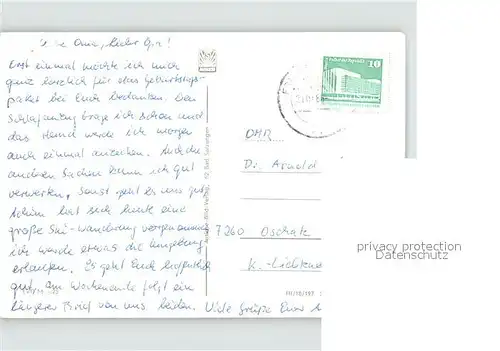 Liebe Oma, lieber Opa!
Erst einmal möchte ich mich
ganz herzlich für das Geburtstags-
paket bei Euch bedanken. Den
Schlafanzug trage ich schon und
das Hemd werde ich morgen
auch einmal anziehen. Auch die
anderen Sachen kann ich gut
verwerten. Sonst geht es uns gut.
Achim hat sich heute eine
große Ski-Wanderung vorgenommen
ich werde etwas die Umgebung
erlaufen. Es geht Euch hoffentlich
gut. Am Wochenende folgt ein
längerer Brief von uns beiden. Viele Grüße Euer
Bild-Verlag, Bad Salzungen
10
DDR
Dr. Arnold
7260 Oschatz
K.-Liebkne
privacy protection
Datenschutz